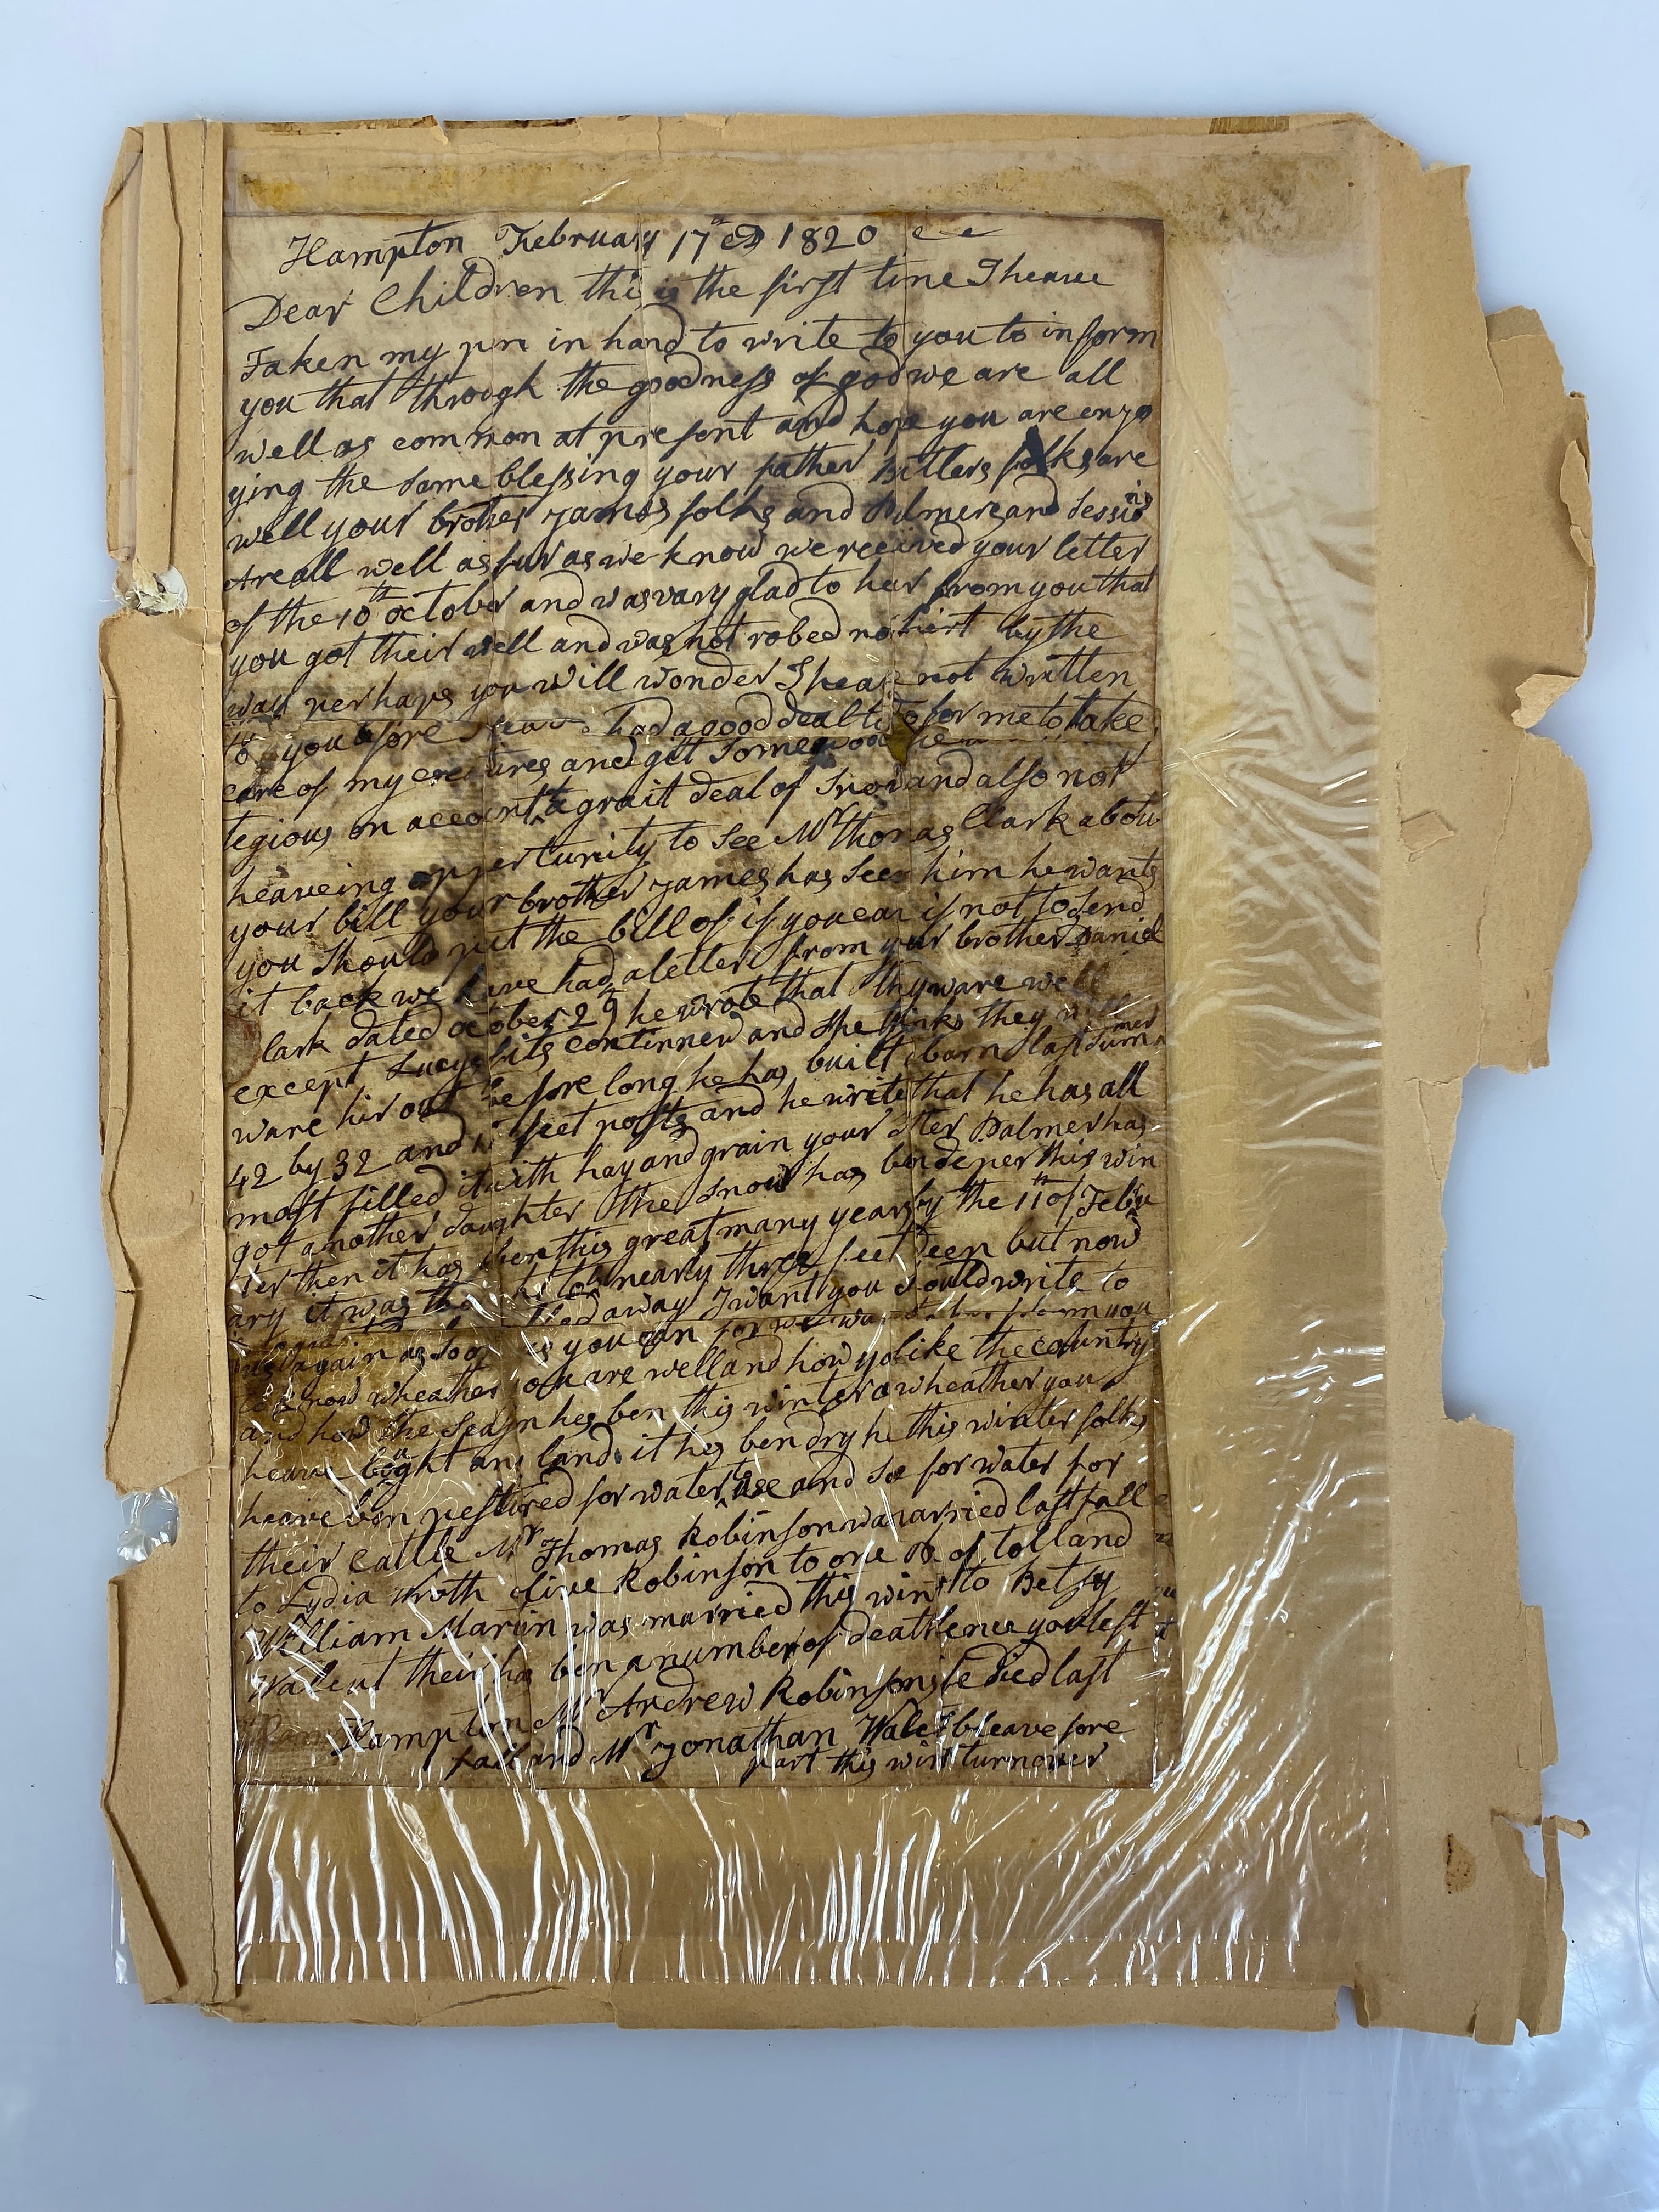 Hampton February 17th AD 1820
Dear Children thi is the first time I heave
Taken my pen in hand to write to you to inform
you that through the goodness of god we are all
well as common at present and hope you are enjo
ying the same blessing your father Butlers folks are
well your brother James folks and Palmers and Sessions
are all well as fur as we know we received your letter
of the 10th October and was vary glad to her from you that
you got their well and was not robed no hirt by the
way perhaps you will wonder I heave not written
to you before I had a good deal to do for me to take
care of my creatures and get some wood
tegious on account a grait deal of Snow and also not
heaveing oppertunity to See Mr thomas Clark about
your bill your brother James has Seen him he wants
you Should put the bill of if you can if not to Send
it back we have had a letter from your brother Daniel
Clark dated October 29 he wrote that they ware well
except Lucys fits continned and She thinks they will
ware hir out before long he has built barn last Summer
42 by 32 and feet posts and he write that he has all
most filled it with hay and grain your Palmer has
got another daughter the Snow has ben deper this win
ter then it has ben this great many years by the 11th of Febru
ary it was nearly three feet deep but now
away I want you Should write to
us again as Soon as you can for we want to her from you
to know wheather you are well and how you like the country
and how the Seasn hes ben this winter or wheather you
heave bought any land it hes ben dry he this winter folks
heave ben pestured for water to use and So for water for
their cattle Mr Thomas Robinson was married last fall
to Lydia olive Robinson to one of tolland
William Martin was married this wint to Betsy
their has ben a number of deaths you left
Hampton Mr Andrew Robinsons died last
fall and Mr Jonathan Wales I bleave fore
part this win turn over